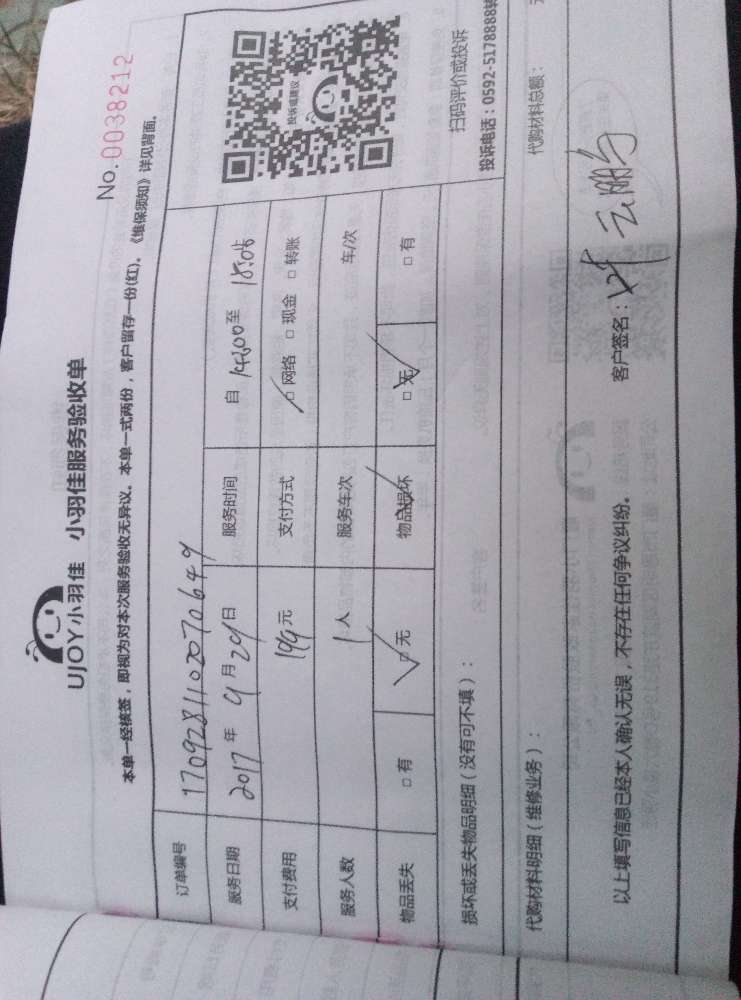 UJOY小羽佳 小羽佳服务验收单
No.0038212
本单一经核签，即视为对本次服务验收无异议。本单一式两份，客户留存一份(红)。《维保须知》详见背面。
订单编号 1709281102070649
服务日期 2017 年 9 月 29 日 服务时间 自 14:00 至 18:08
支付费用 199 元 支付方式 □ 网络 □ 现金 □ 转账
服务人数 1 人 服务车次 车/次
物品丢失 □ 有 □ 无 物品损坏 □ 无 □ 有
投诉或建议
扫码评价或投诉
投诉电话：0592-5178888转
损坏或丢失物品明细（没有可不填）：
代购材料明细（维修业务）： 代购材料总额： 元
以上填写信息已经本人确认无误，不存在任何争议纠纷。 客户签名：叶云鹏